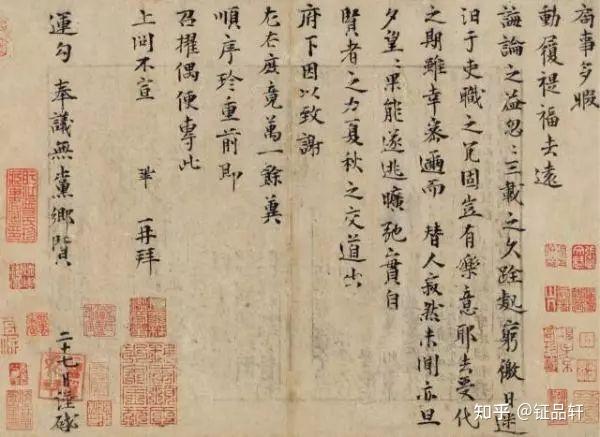 局事多暇
動履禔福去遠
誨論之益忽〻三載之久跧處窮徼日迷
汩于吏職之冗固豈有樂意耶去受代
之期雖幸密邇而替人寂然未聞亦旦
夕望〻果能遂逃曠弛實自
賢者之力夏秋之交道出
府下因以致謝
左右庶竟萬一餘冀
順序珍重前即
召擢偶便專此
上問不宣 鞏再拜
運勾奉議無黨鄉賢 二十七日謹啟
知乎 @钲品轩